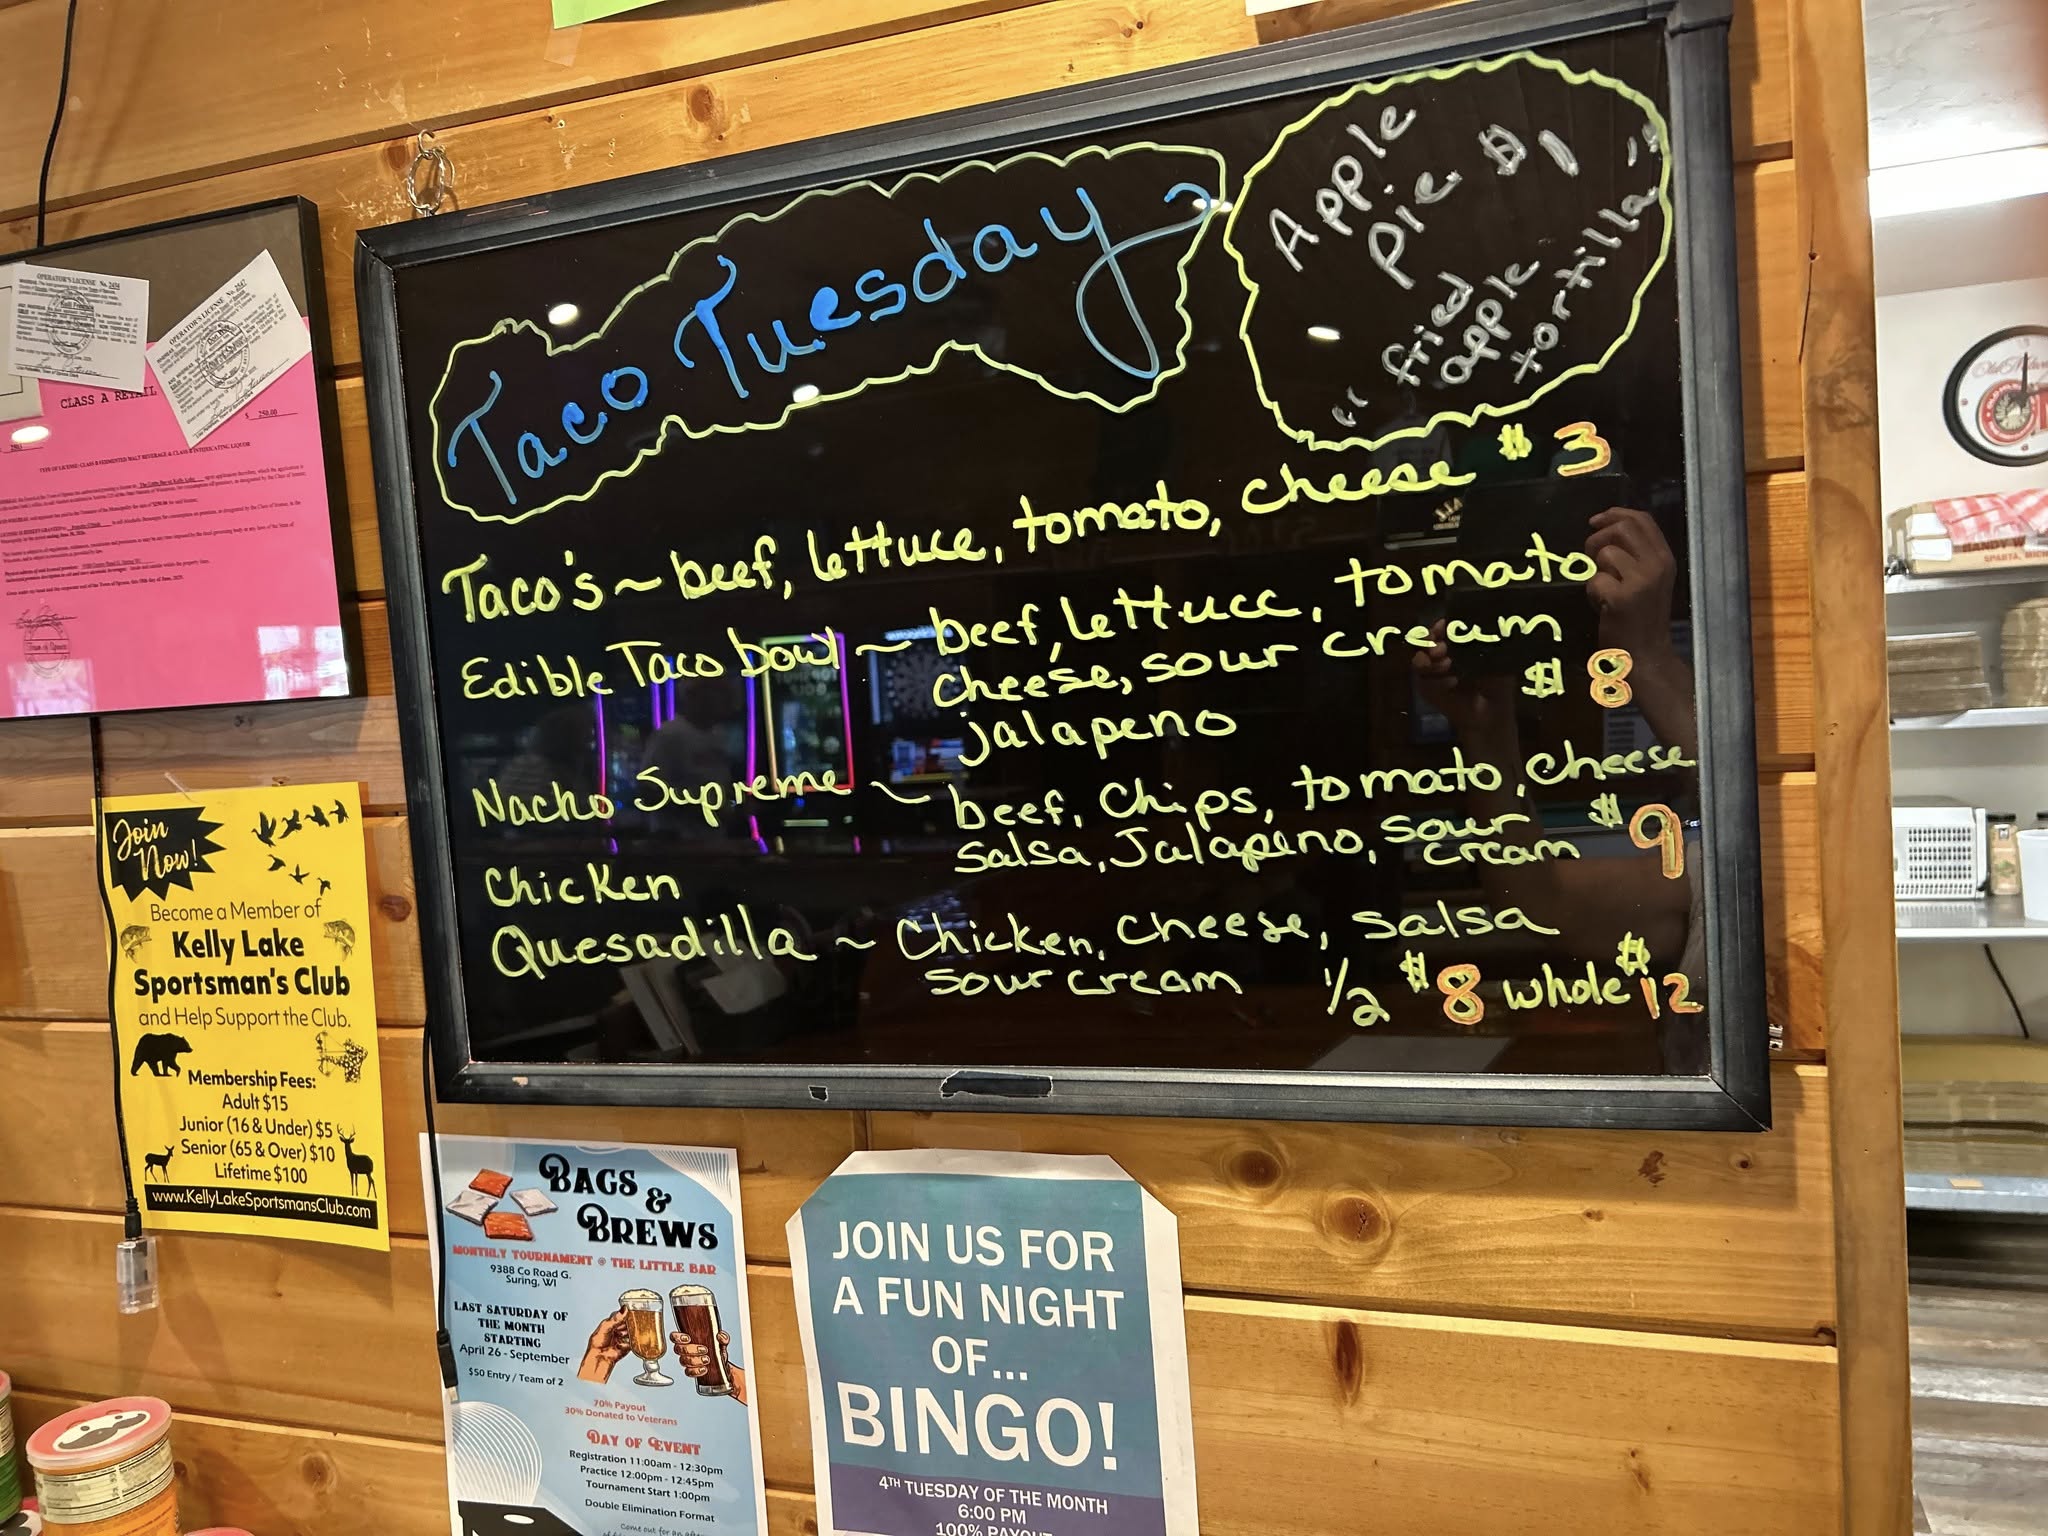 Taco Tuesday
Apple
Pie $1
"fried
apple
tortilla"
Taco's ~ beef, lettuce, tomato, cheese $3
Edible Taco bowl ~ beef, lettuce, tomato
cheese, sour cream
jalapeno $8
Nacho Supreme ~ beef, Chips, tomato, cheese
Salsa, Jalapeno, sour
cream $9
Chicken
Quesadilla ~ Chicken, cheese, salsa
sour cream 1/2 $8 whole $12
OPERATOR'S LICENSE No. 2434
OPERATOR'S LICENSE No. 2547
CLASS A RETAIL
$ 250.00
TYPE OF LICENSE: CLASS B FERMENTED MALT BEVERAGE & CLASS B INTOXICATING LIQUOR
Join
Now!
Become a Member of
Kelly Lake
Sportsman's Club
and Help Support the Club.
Membership Fees:
Adult $15
Junior (16 & Under) $5
Senior (65 & Over) $10
Lifetime $100
www.KellyLakeSportsmansClub.com
BAGS &
BREWS
MONTHLY TOURNAMENT @ THE LITTLE BAR
9388 Co Road G.
Suring, WI
LAST SATURDAY OF
THE MONTH
STARTING
April 26 - September
$50 Entry / Team of 2
70% Payout
30% Donated to Veterans
DAY OF EVENT
Registration 11:00am - 12:30pm
Practice 12:00pm - 12:45pm
Tournament Start 1:00pm
Double Elimination Format
Come out for an
JOIN US FOR
A FUN NIGHT
OF...
BINGO!
4TH TUESDAY OF THE MONTH
6:00 PM
100% PAYOUT